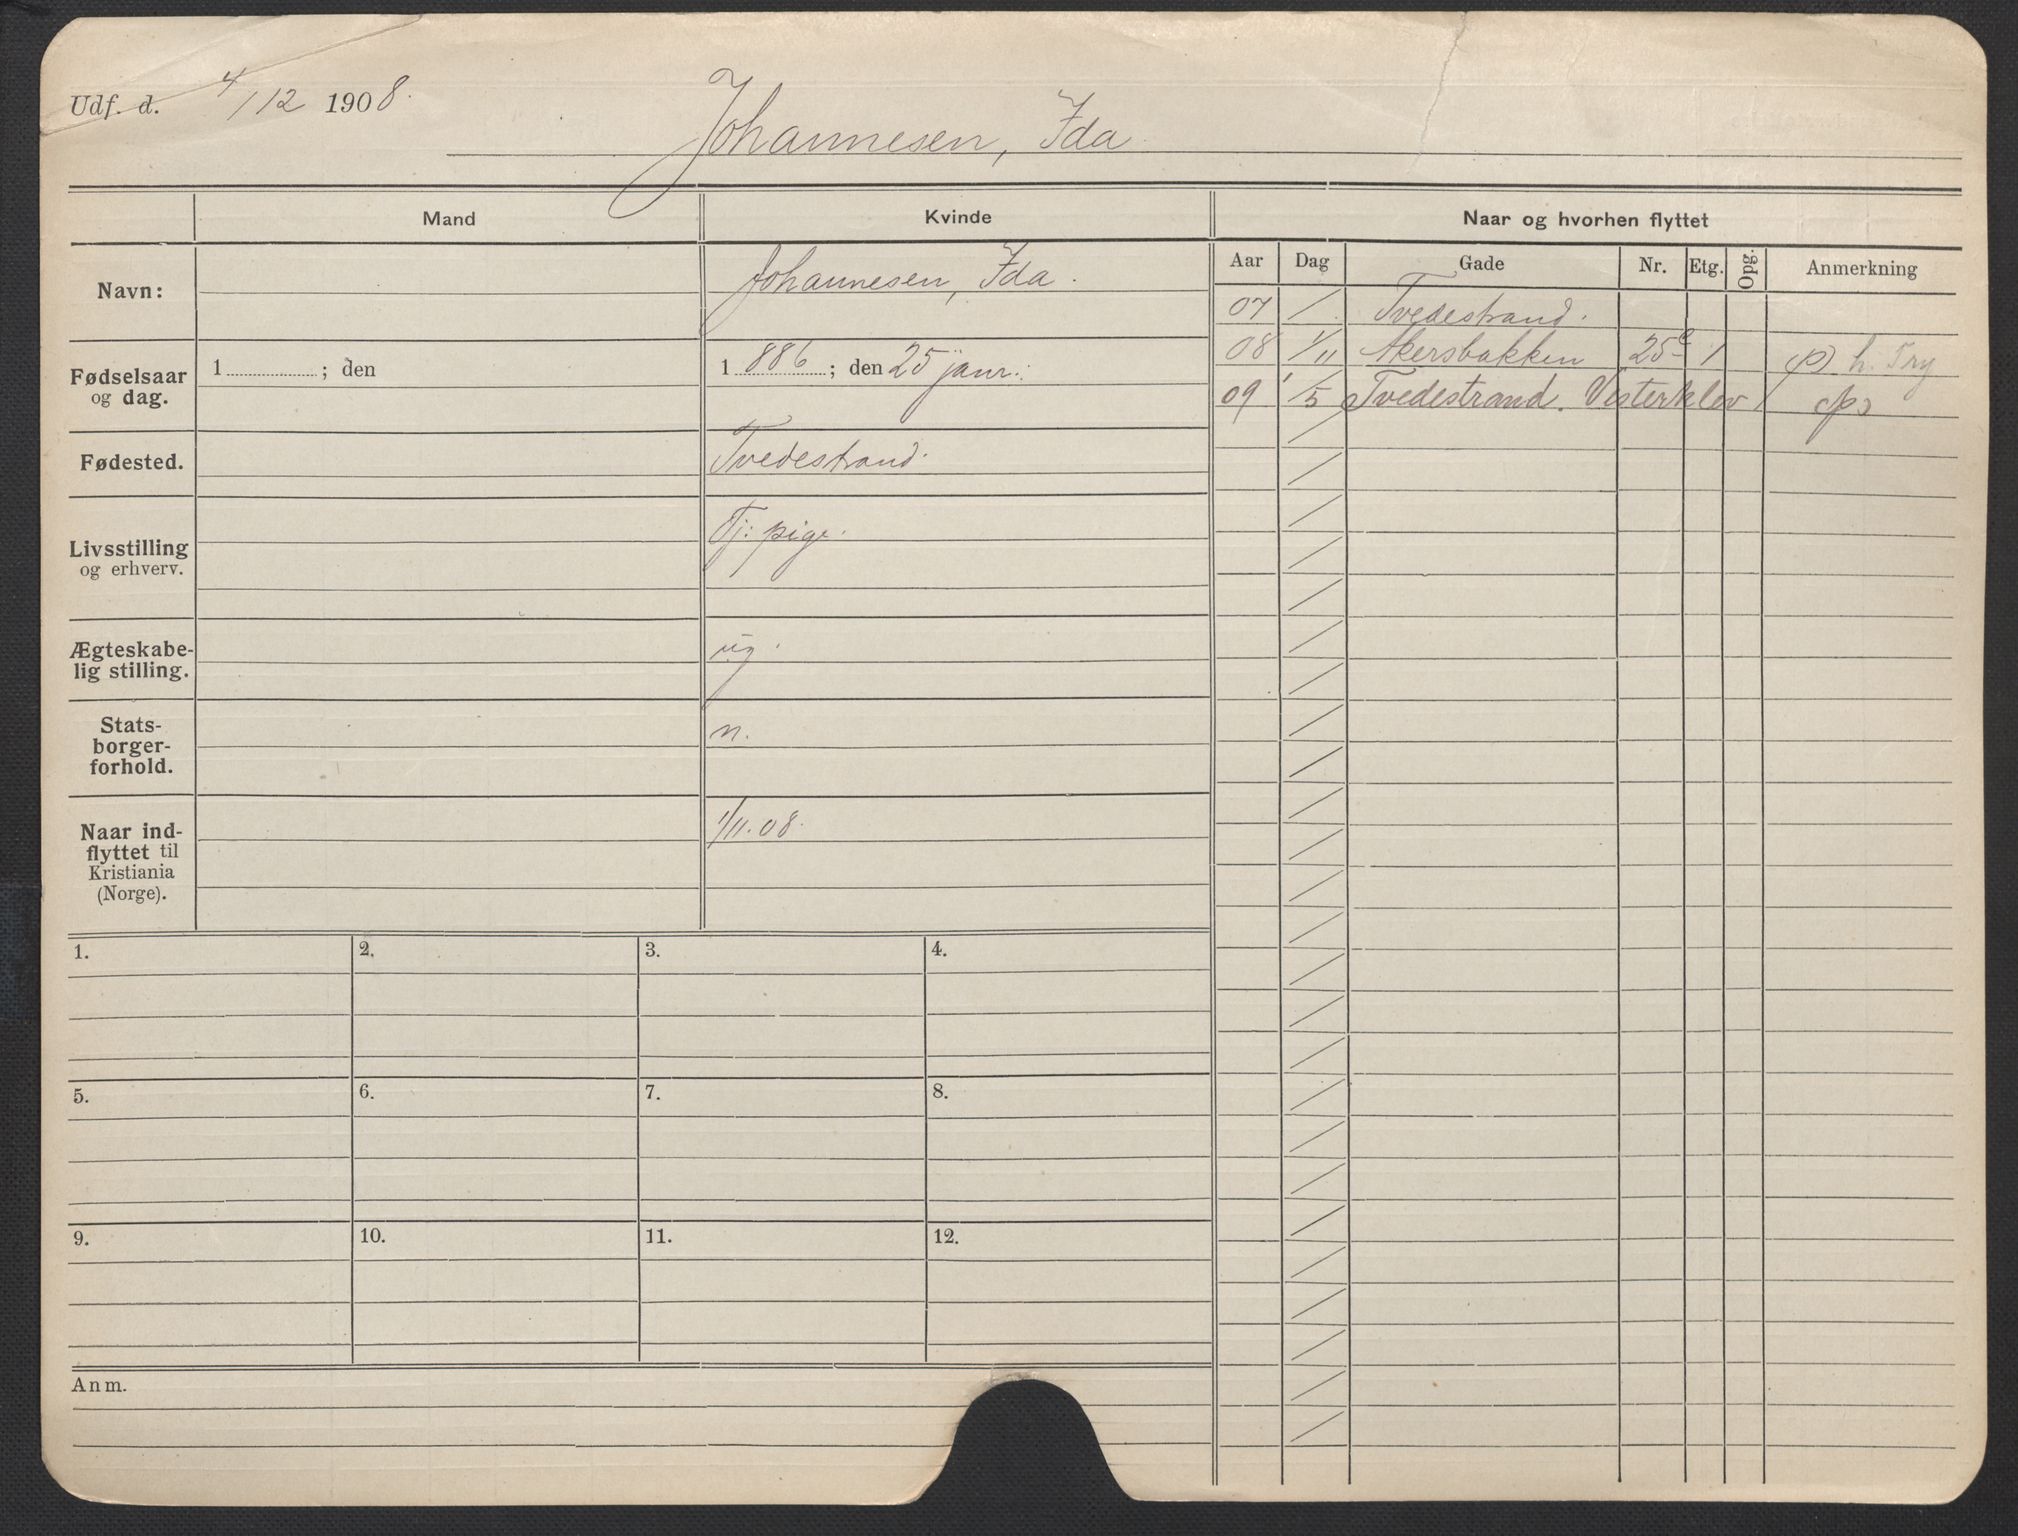 Udf. d. 4/12 1908.
Johannesen, Ida
Mand Kvinde Naar og hvorhen flyttet
Aar Dag Gade Nr. Etg. Opg. Anmerkning
Navn: Johannesen, Ida.
07 / Tvedestrand.
08 1/11 Akersbakken 25c 1 (p) h. Try
09 1/5 Tvedestrand. Vesterklev (p)
Fødselsaar
og dag.
1 ; den
1 886 ; den 25 janr.
Fødested. Tvedestrand.
Livsstilling
og erhverv.
Tj: pige.
Ægteskabe-
lig stilling.
ug.
Stats-
borger-
forhold.
n.
Naar ind-
flyttet til
Kristiania
(Norge).
1/11.08.
1. 2. 3. 4.
5. 6. 7. 8.
9. 10. 11. 12.
Anm.